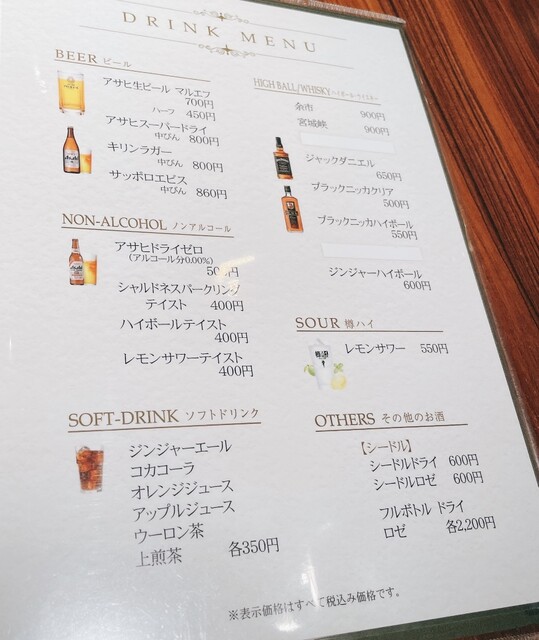 DRINK MENU
BEER ビール
アサヒ生ビール マルエフ
700円
ハーフ 450円
アサヒスーパードライ
中びん 800円
キリンラガー
中びん 800円
サッポロエビス
中びん 860円
NON-ALCOHOL ノンアルコール
アサヒドライゼロ
(アルコール分0.00%)
500円
シャルドネスパークリング
テイスト 400円
ハイボールテイスト
400円
レモンサワーテイスト
400円
SOFT-DRINK ソフトドリンク
ジンジャーエール
コカコーラ
オレンジジュース
アップルジュース
ウーロン茶
上煎茶 各350円
HIGH BALL/WHISKY ハイボール・ウイスキー
余市 900円
宮城峡 900円
ジャックダニエル
650円
ブラックニッカクリア
500円
ブラックニッカハイボール
550円
ジンジャーハイボール
600円
SOUR 樽ハイ
レモンサワー 550円
OTHERS その他のお酒
【シードル】
シードルドライ 600円
シードルロゼ 600円
フルボトル ドライ
ロゼ 各2,200円
※表示価格はすべて税込み価格です。